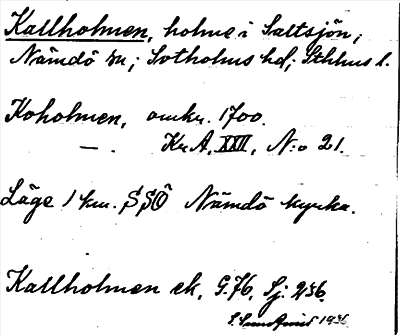 Kallholmen, holme i Saltsjön,
Nämdö sn; Sotholms hd; Sthlms l.
Koholmen, omkr. 1700.
—. Kr A, XXII, N:o 21.
Läge 1 km. SSÖ Nämdö kyrka.
Kallholmen ek, G.76, Sj: 236.
S. Sundqvist 1936